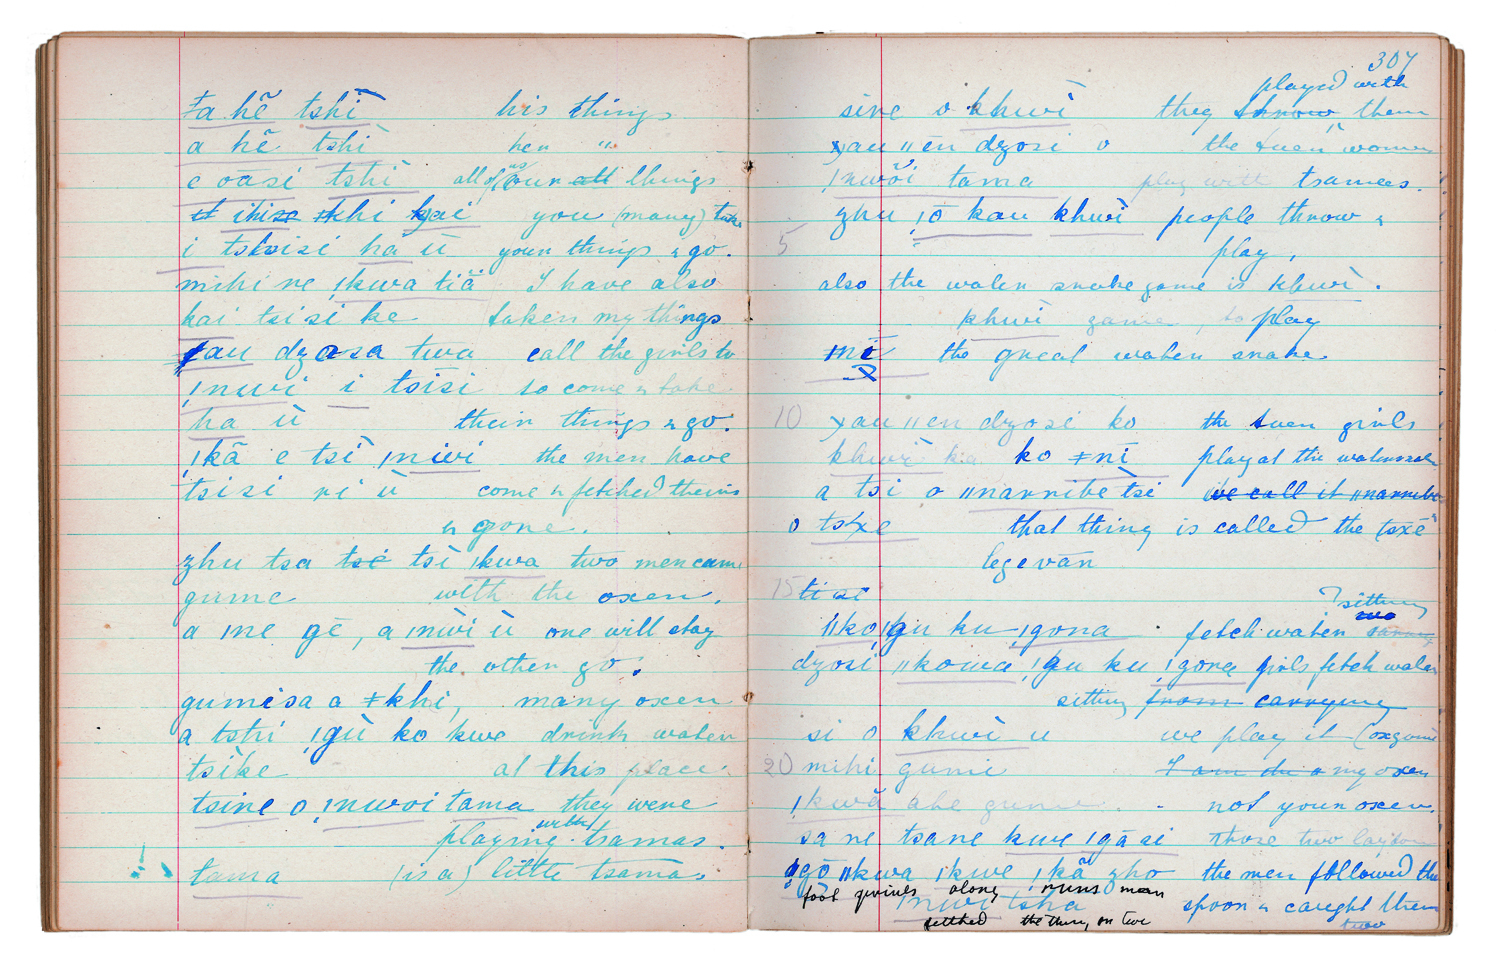 ŧa hẽ tshì his things
a hẽ tshì her "
e oasi tshì all of us our all things
ihisa ǂkhi kxai you (many) take
i tshisi ha ù your things & go.
mihi ne ǀkwa tiä I have also
kai tsisi ke taken my things
ǂau dzasa twa call the girls to
ǀnwi i tsisi to come & take
ha ù their things & go.
ǀkā e tsi ǀniwi the men have
tsisi ni ù come & fetched theirs
& gone.
zhu tsa tsè tsì ǀkwa two men came
gume with the oxen.
a ǀne gē, a ǀnùwì ù one will stay
the other go.
gumisa a ǂkhi, many oxen
a tshi ǀgù ko kwe drink water
tsìke at this place.
tsine o ǀnwoi tama they were
playing with tsamas.
tama (is a) little tsama.
307
played with
sine o khwì they throw them
xau ǁēn dzosi o the ǁuen women
ǀnwõi tama play with tsamas.
zhu ǀō kau khwì people throw &
5 play,
also the water snake game is khwì.
khwì game, to play
ǀnē the great water snake
10 xau ǁen dzosi ko the ǁuen girls
khwì ka ko ǂnī play at the watersnake
a tsi o ǁnarribe tsè we call it ǁnarribe
o tsxe that thing is called the tsxē
legevān
15 ti si
? sitting
ǁko ǀgu ku ǀgona fetch water
dzosi ǁkowa ǀgu ku ǀgona girls fetch water
sitting from carrying
si o khwì u we play it (oxgame
20 mihi gumi I am du a my oxen
ǀkwā ahe gume - not your oxen.
sa ne tsane kwe ǀgā ai those two lay down
ǀgō ǁkwa ǀkwe ǀkā zho the men followed the
foot giving along runs man
ǀnwi tsha spoor & caught them
settled the them, on two two